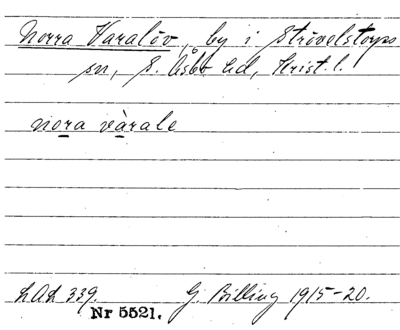 Norra Varalöv, by i Strövelstorps
sn, S. Åsbo hd, Krist. l.
nora vàrale
LAL 339. G. Billing 1915-20.
Nr 5521.